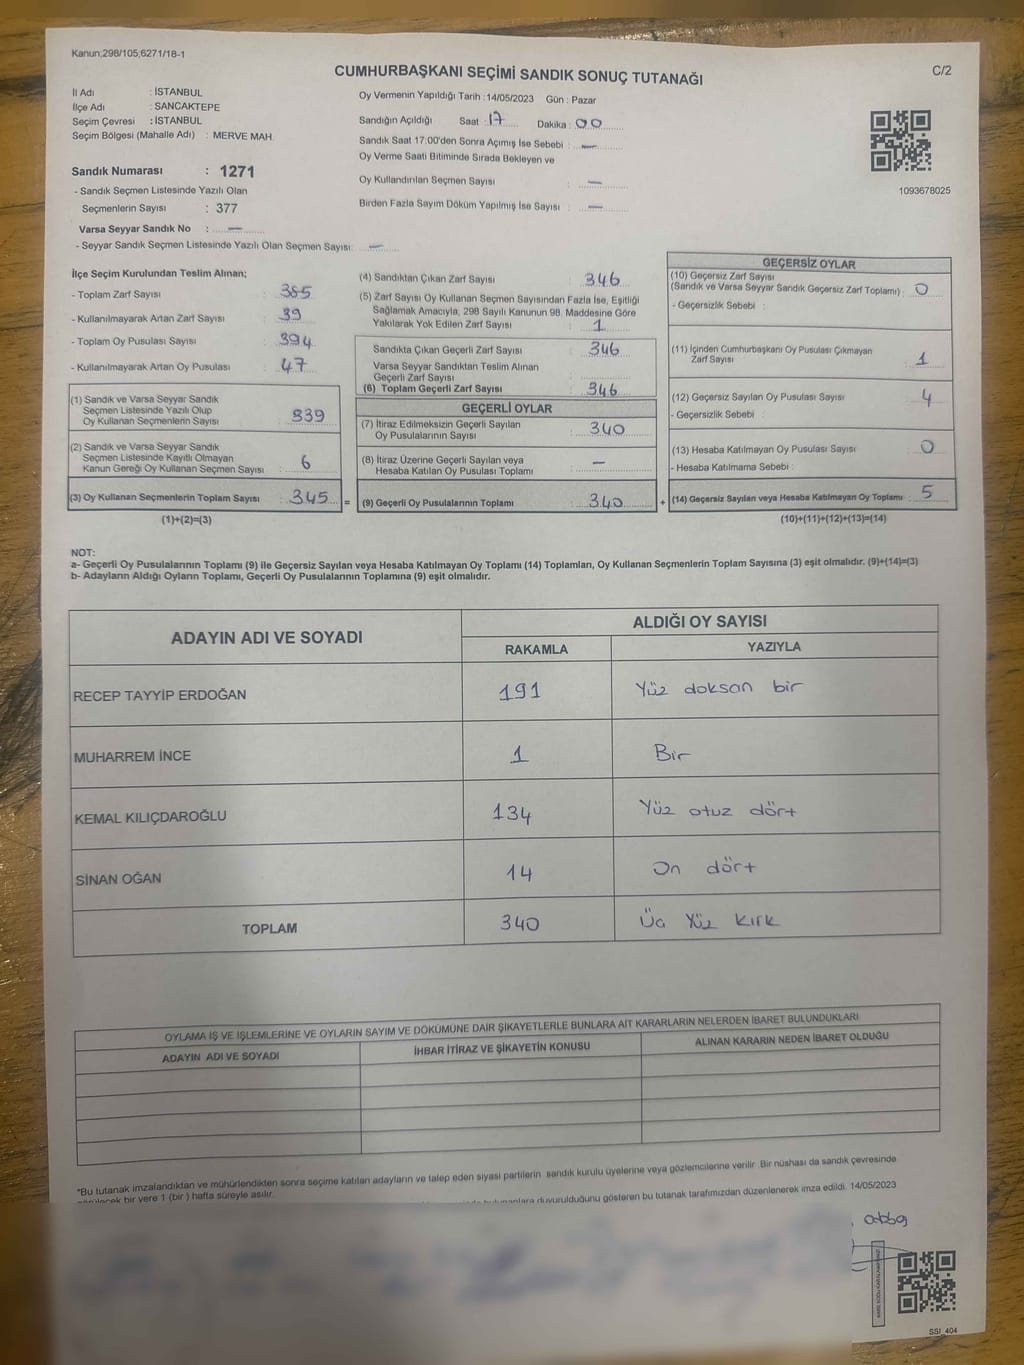 Kanun;298/105;6271/18-1
CUMHURBAŞKANI SEÇİMİ SANDIK SONUÇ TUTANAĞI
C/2
İl Adı : İSTANBUL
İlçe Adı : SANCAKTEPE
Seçim Çevresi : İSTANBUL
Seçim Bölgesi (Mahalle Adı) : MERVE MAH.
Sandık Numarası : 1271
- Sandık Seçmen Listesinde Yazılı Olan
Seçmenlerin Sayısı : 377
Varsa Seyyar Sandık No : —
- Seyyar Sandık Seçmen Listesinde Yazılı Olan Seçmen Sayısı: —
Oy Vermenin Yapıldığı Tarih :14/05/2023 Gün : Pazar
Sandığın Açıldığı Saat : 17 Dakika : 00
Sandık Saat 17.00'den Sonra Açımış İse Sebebi : —
Oy Verme Saati Bitiminde Sırada Bekleyen ve
Oy Kullandırılan Seçmen Sayısı : —
Birden Fazla Sayım Döküm Yapılmış İse Sayısı : —
1093678025
İlçe Seçim Kurulundan Teslim Alınan;
- Toplam Zarf Sayısı : 385
- Kullanılmayarak Artan Zarf Sayısı : 39
- Toplam Oy Pusulası Sayısı : 394
- Kullanılmayarak Artan Oy Pusulası : 47
(1) Sandık ve Varsa Seyyar Sandık
Seçmen Listesinde Yazılı Olup
Oy Kullanan Seçmenlerin Sayısı : 339
(2) Sandık ve Varsa Seyyar Sandık
Seçmen Listesinde Kayıtlı Olmayan
Kanun Gereği Oy Kullanan Seçmen Sayısı : 6
(3) Oy Kullanan Seçmenlerin Toplam Sayısı : 345 =
(1)+(2)=(3)
(4) Sandıktan Çıkan Zarf Sayısı : 346
(5) Zarf Sayısı Oy Kullanan Seçmen Sayısından Fazla İse, Eşitliği
Sağlamak Amacıyla, 298 Sayılı Kanunun 98. Maddesine Göre
Yakılarak Yok Edilen Zarf Sayısı : 1
Sandıkta Çıkan Geçerli Zarf Sayısı : 346
Varsa Seyyar Sandıktan Teslim Alınan
Geçerli Zarf Sayısı :
(6) Toplam Geçerli Zarf Sayısı : 346
GEÇERLİ OYLAR
(7) İtiraz Edilmeksizin Geçerli Sayılan
Oy Pusulalarının Sayısı : 340
(8) İtiraz Üzerine Geçerli Sayılan veya
Hesaba Katılan Oy Pusulası Toplamı : —
(9) Geçerli Oy Pusulalarının Toplamı : 340 +
GEÇERSİZ OYLAR
(10) Geçersiz Zarf Sayısı
(Sandık ve Varsa Seyyar Sandık Geçersiz Zarf Toplamı) : 0
- Geçersizlik Sebebi :
(11) İçinden Cumhurbaşkanı Oy Pusulası Çıkmayan
Zarf Sayısı : 1
(12) Geçersiz Sayılan Oy Pusulası Sayısı : 4
- Geçersizlik Sebebi :
(13) Hesaba Katılmayan Oy Pusulası Sayısı : 0
- Hesaba Katılmama Sebebi :
(14) Geçersiz Sayılan veya Hesaba Katılmayan Oy Toplamı : 5
(10)+(11)+(12)+(13)=(14)
NOT:
a- Geçerli Oy Pusulalarının Toplamı (9) ile Geçersiz Sayılan veya Hesaba Katılmayan Oy Toplamı (14) Toplamları, Oy Kullanan Seçmenlerin Toplam Sayısına (3) eşit olmalıdır. (9)+(14)=(3)
b- Adayların Aldığı Oyların Toplamı, Geçerli Oy Pusulalarının Toplamına (9) eşit olmalıdır.
ADAYIN ADI VE SOYADI
ALDIĞI OY SAYISI
RAKAMLA YAZIYLA
RECEP TAYYİP ERDOĞAN 191 Yüz doksan bir
MUHARREM İNCE 1 Bir
KEMAL KILIÇDAROĞLU 134 Yüz otuz dört
SİNAN OĞAN 14 On dört
TOPLAM 340 Üç Yüz kırk
OYLAMA İŞ VE İŞLEMLERİNE VE OYLARIN SAYIM VE DÖKÜMÜNE DAİR ŞİKAYETLERLE BUNLARA AİT KARARLARIN NELERDEN İBARET BULUNDUKLARI
ADAYIN ADI VE SOYADI İHBAR İTİRAZ VE ŞİKAYETİN KONUSU ALINAN KARARIN NEDEN İBARET OLDUĞU
*Bu tutanak imzalandıktan ve mühürlendikten sonra seçime katılan adayların ve talep eden siyasi partilerin sandık kurulu üyelerine veya gözlemcilerine verilir. Bir nüshası da sandık çevresinde
görülecek bir yere 1 (bir ) hafta süreyle asılır.
duyurulduğunu gösteren bu tutanak tarafımızdan düzenlenerek imza edildi. 14/05/2023
SSI_404